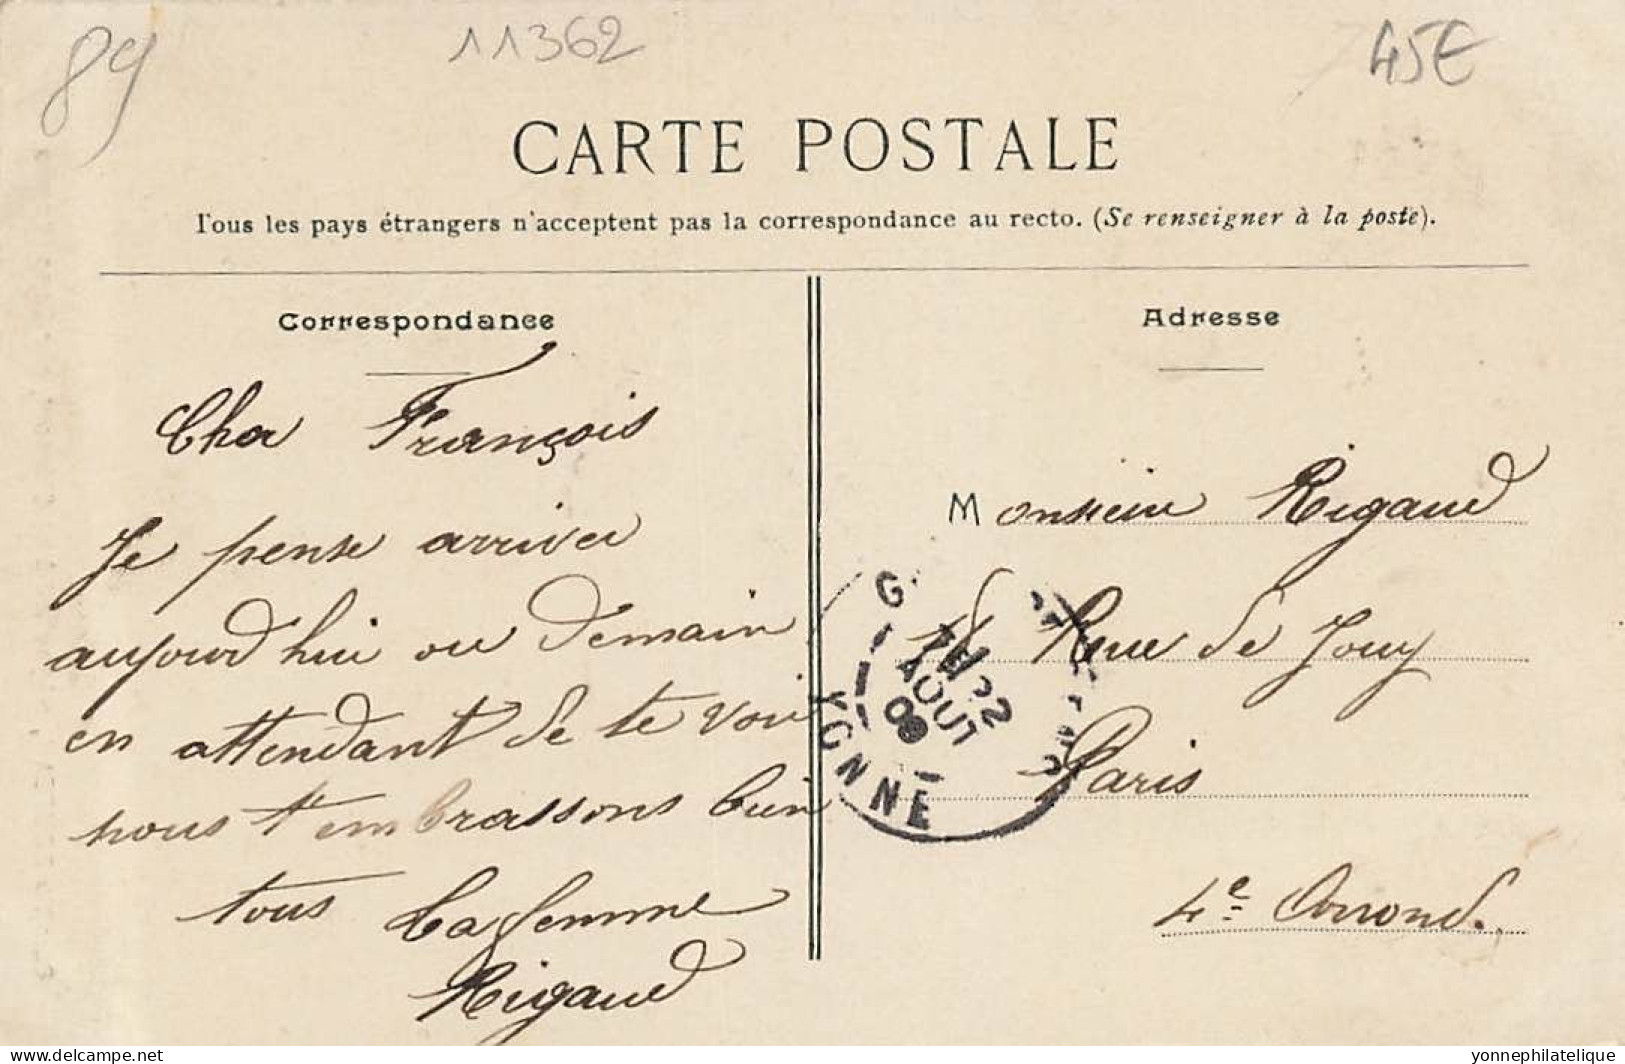 89
11362
45€
CARTE POSTALE
Tous les pays étrangers n'acceptent pas la correspondance au recto. (Se renseigner à la poste).
Correspondance
Cher François
Je pense arriver
aujourd'hui ou demain
en attendant de te voir
nous t'embrassons bien
tous Ta femme
Rigaud
Adresse
Monsieur Rigaud
18 Rue de Jouy
Paris
4e Arrond.
22
AOUT
YONNE
yonnephilatelie
www.delcampe.net
yonnephilatelique